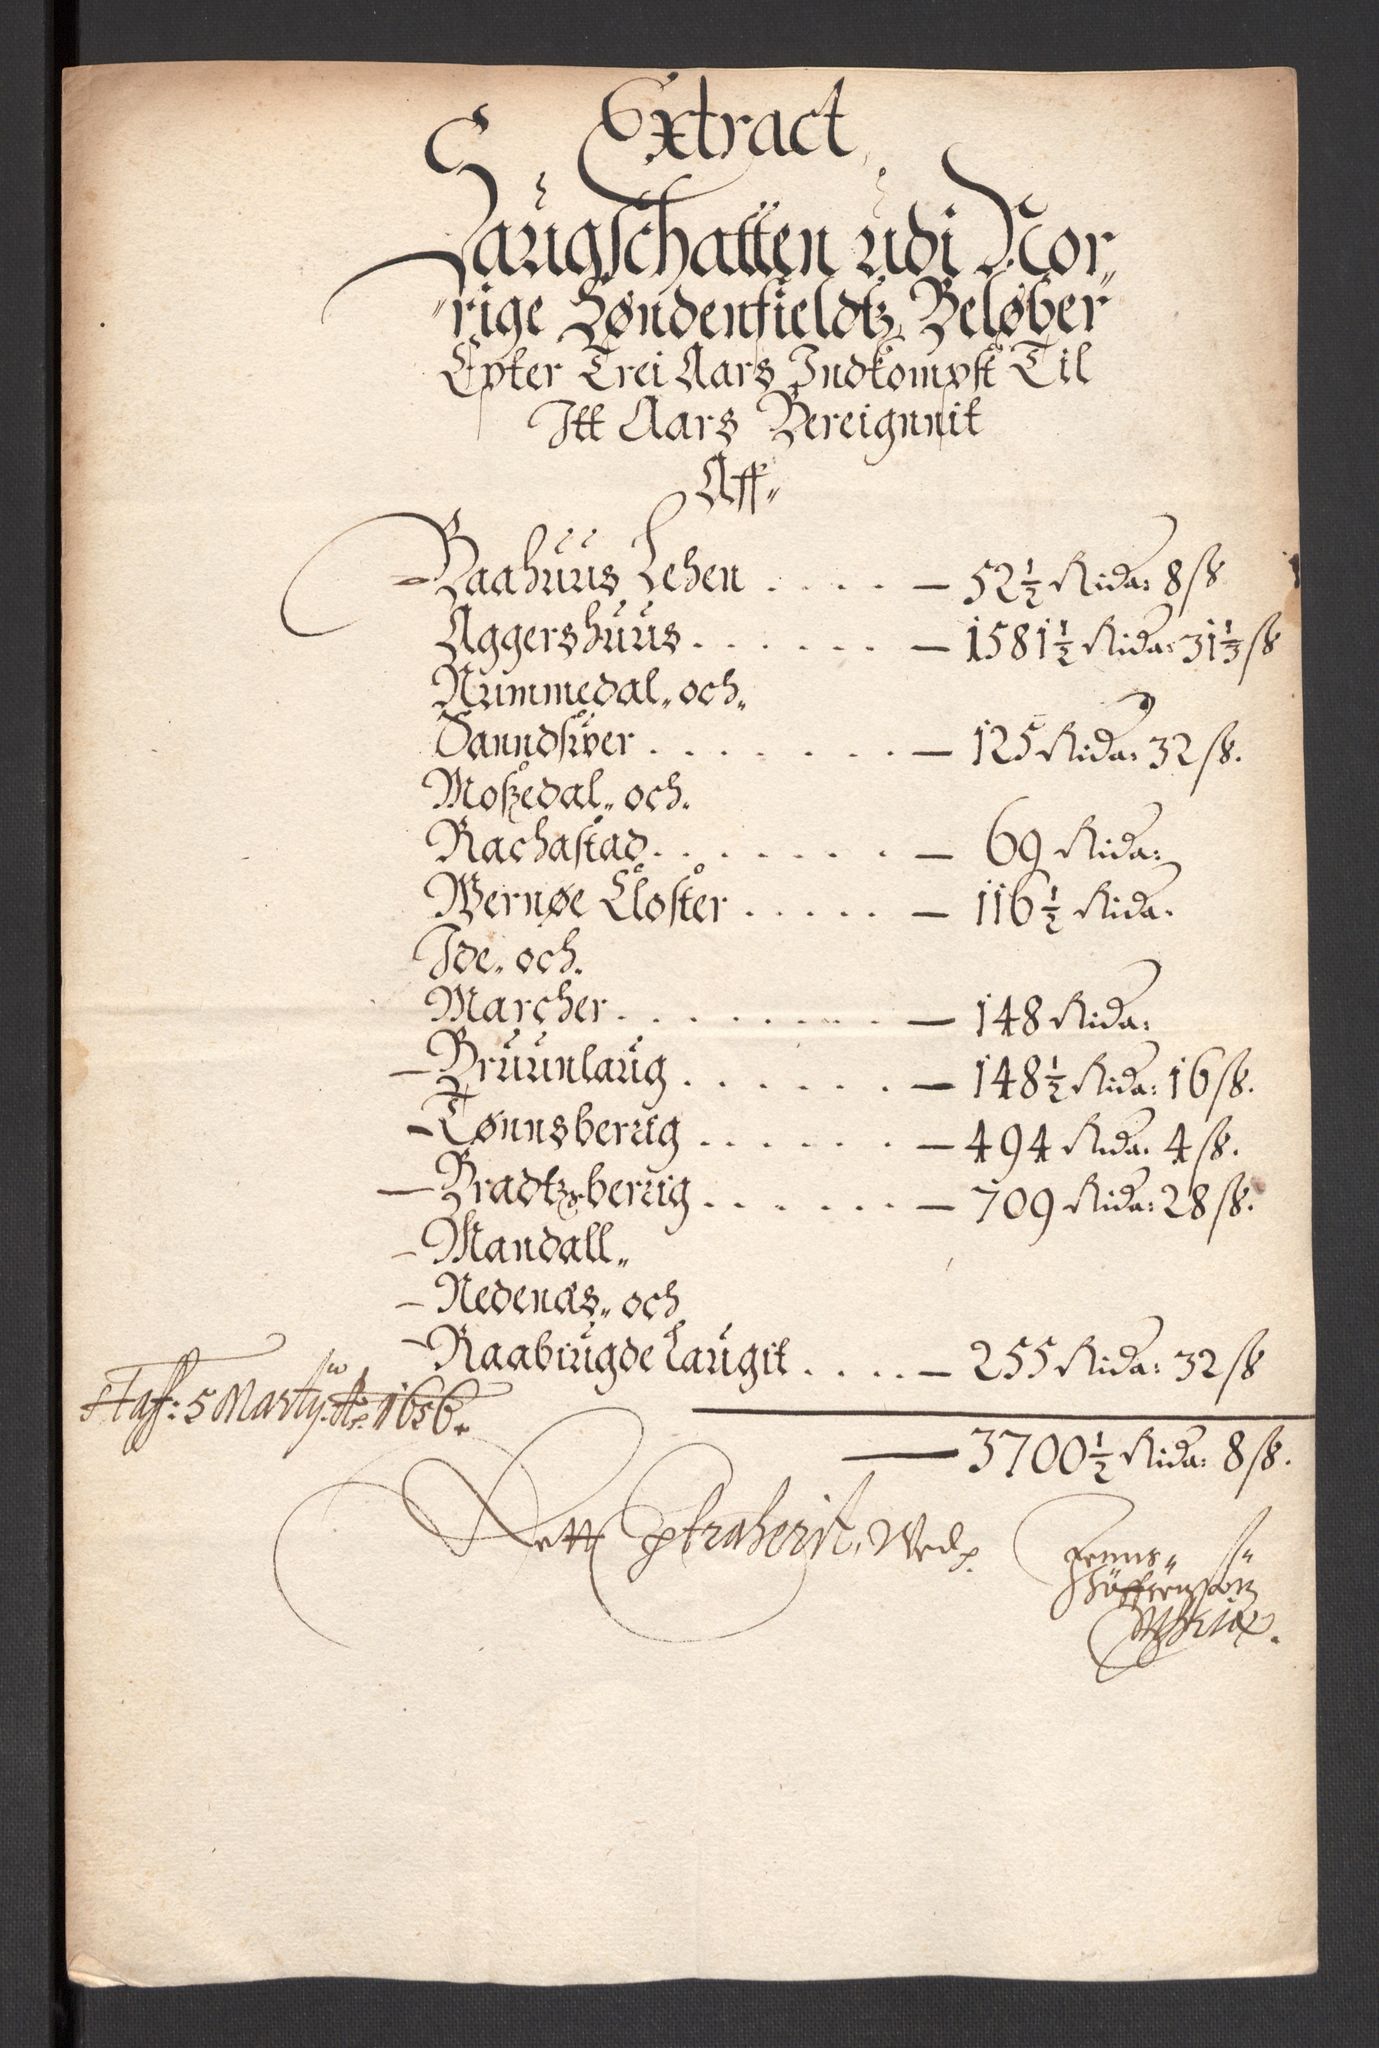 Extract
Saugschatten udi Nor-
rige Söndenfieldtz Beløber
Epter Trei Aars Indkompst Til
Itt Aars Bereignnit
Aff
Baahuus Lehen . . . . — 52½ Rida: 8 ſß
Aggershuus . . . . . . — 1581½ Rida: 31⅓ ſß
Nummedal. och.
Sanndsver . . . . . . . — 125 Rida: 32 ſß.
Moszedal. och.
Rachastad . . . . . . . — 69 Rida:
Wernøe Closter . . . . . — 116½ Rida.
Ide. och.
Marcher . . . . . . . . — 148 Rida:
— Bruunlaug . . . . . . — 148½ Rida: 16 ſß.
— Tønnsberug . . . . . . — 494 Rida: 4 ſß.
— Bradtzberug . . . . . . — 709 Rida: 28 ſß.
— Mandall
— Nedenæs. och
— Raabiugde Laugit . . . . — 255 Rida: 32 ſß
5 Marty Ao 1656.
— 3700½ Rida: 8 ſß.
Rett Extraherit, Ved